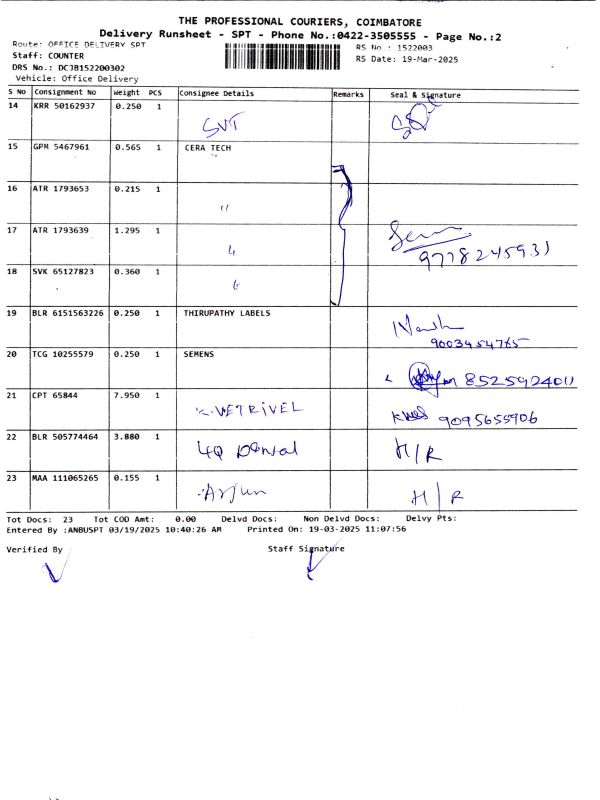 THE PROFESSIONAL COURIERS, COIMBATORE
Delivery Runsheet - SPT - Phone No.:0422-3505555 - Page No.:2
Route: OFFICE DELIVERY SPT
RS No : 1522003
Staff: COUNTER
RS Date: 19-Mar-2025
DRS No.: DCJB152200302
Vehicle: Office Delivery
S No Consignment No Weight PCS Consignee Details Remarks Seal & Signature
14 KRR 50162937 0.250 1 SVT
15 GPM 5467961 0.565 1 CERA TECH
16 ATR 1793653 0.215 1 "
17 ATR 1793639 1.295 1 "
9778245931
18 SVK 65127823 0.360 1 "
19 BLR 6151563226 0.250 1 THIRUPATHY LABELS
9003454765
20 TCG 10255579 0.250 1 SEMENS
8525924011
21 CPT 65844 7.950 1 K. VETRIVEL
9095655906
22 BLR 505774464 3.880 1 4Q Dental H/R
23 MAA 111065265 0.155 1 Arjun H/R
Tot Docs: 23 Tot COD Amt: 0.00 Delvd Docs: Non Delvd Docs: Delvy Pts:
Entered By :ANBUSPT 03/19/2025 10:40:26 AM Printed On: 19-03-2025 11:07:56
Verified By Staff Signature